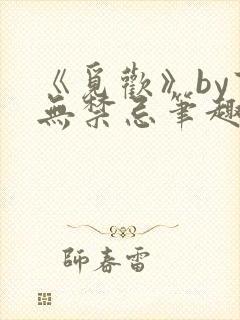 《覓歡》by
無禁忌筆趣
師春雷